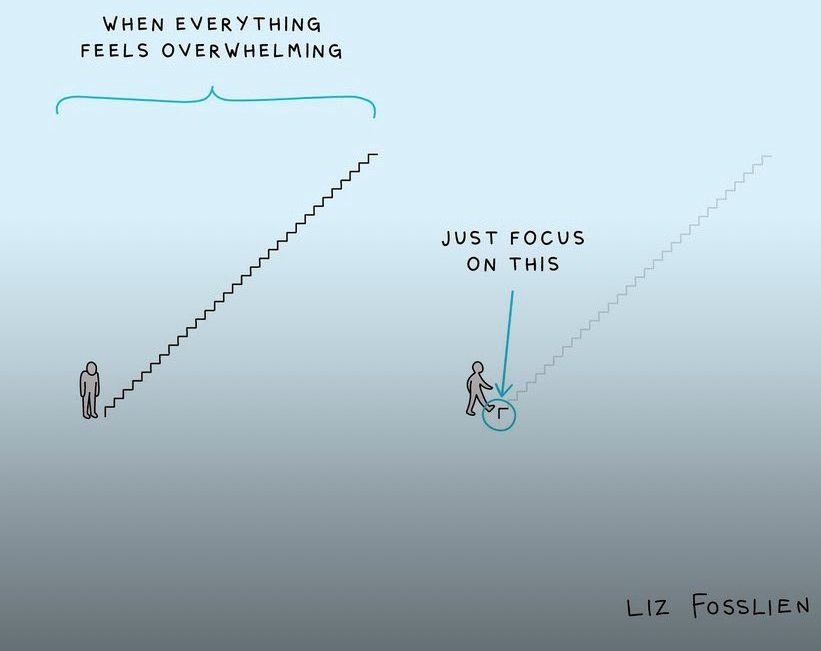 WHEN EVERYTHING
FEELS OVERWHELMING
JUST FOCUS
ON THIS
LIZ FOSSLIEN